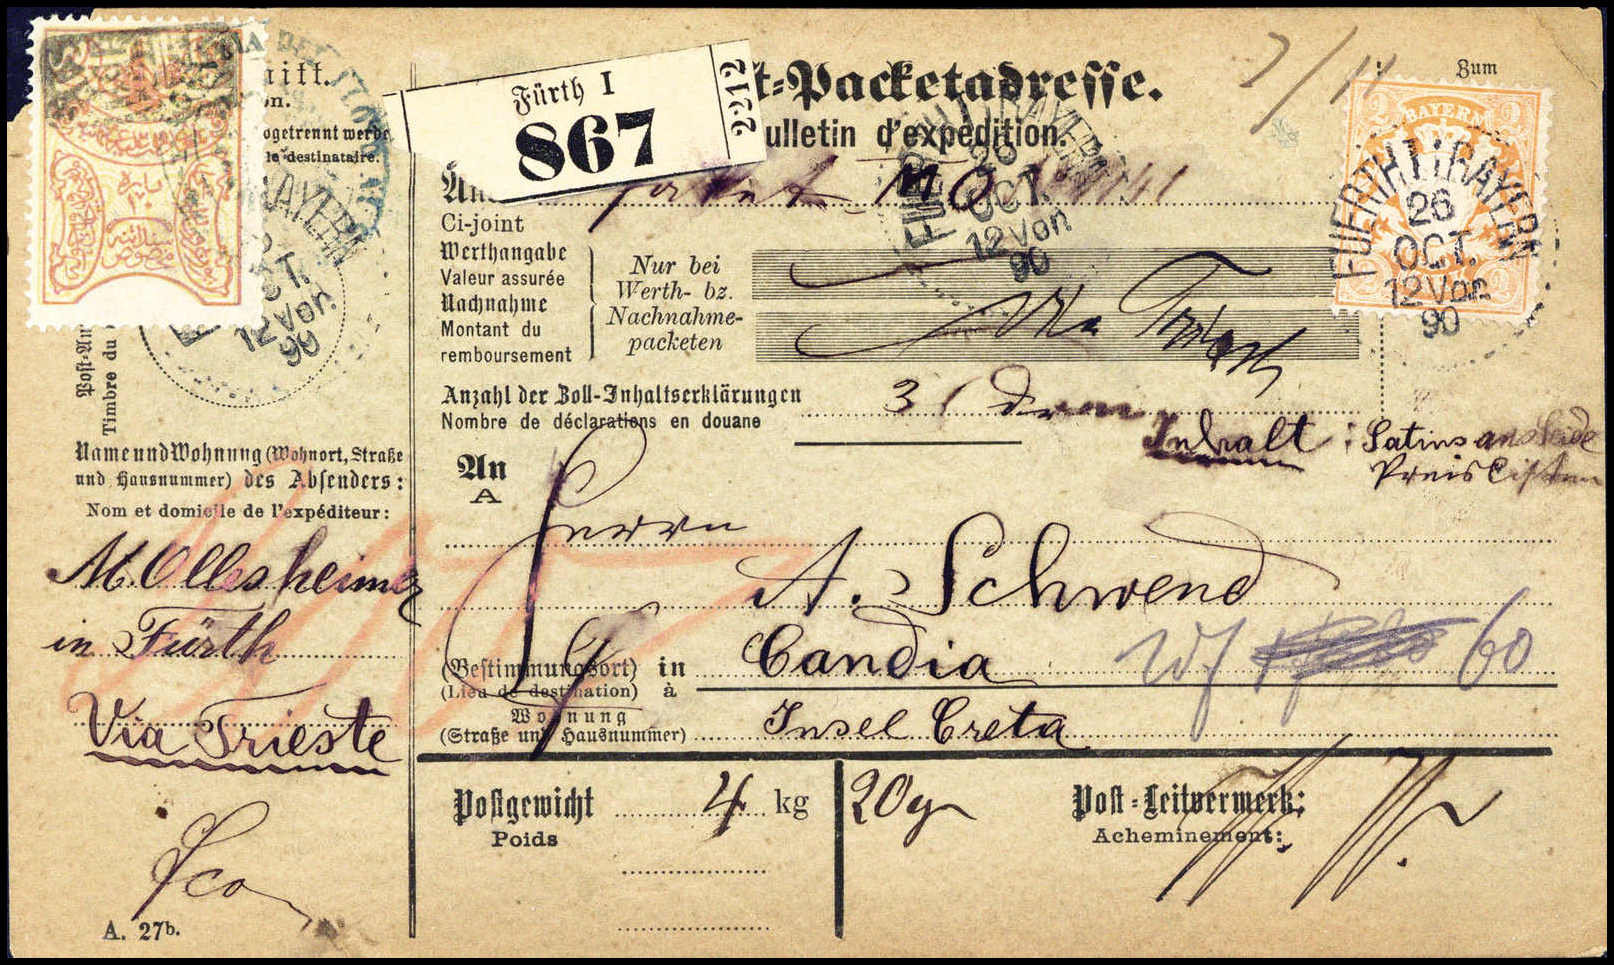 Fürth I
867
2212
t-Packetadresse.
ulletin d'expédition.
Zum
nitt.
on.
bgetrennt werde
le destinataire.
An
Ci-joint
Werthangabe
Valeur assurée
Nachnahme
Montant du
remboursement
Nur bei
Werth- bz.
Nachnahme-
packeten
Via Triest
Anzahl der Zoll-Inhaltserklärungen
Nombre de déclarations en douane
3
Inhalt: Satins
Preis Listen
2 BAYERN 2
FUERTH I (BAYERN
26
OCT.
12 Von
90
FUERTH I (BAYERN
26
OCT.
12 Von
90
BAYERN
CT.
12 Von
90
Post-An
Timbre du
Name und Wohnung (Wohnort, Straße
und Hausnummer) des Absenders:
Nom et domicile de l'expéditeur:
M. Ollesheimer
in Fürth
Via Trieste
fco
A. 27b.
An
A
Herrn
A. Schwend
(Bestimmungsort) in
(Lieu de destination) à
Candia
60
Wohnung
(Straße und Hausnummer)
Insel Creta
Postgewicht
Poids
4 kg
20 gr
Post-Leitvermerk:
Acheminement: